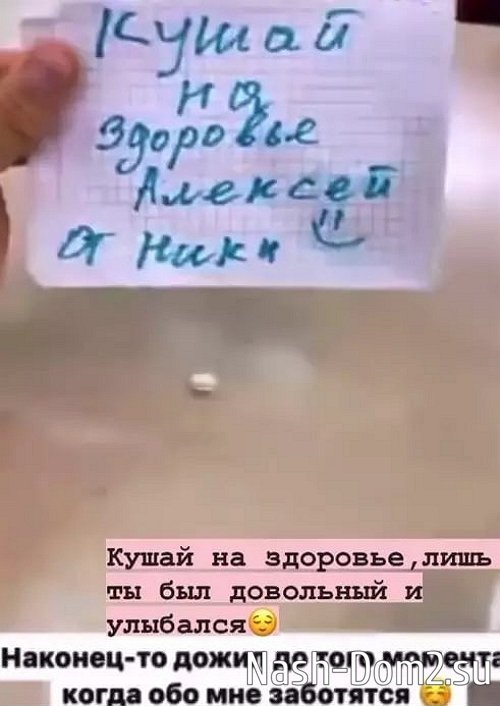 Кушай
на
Здоровье
Алексей
от Ники
Кушай на здоровье,лишь
ты был довольный и
улыбался😌
Наконец-то дожил до того момента
когда обо мне заботятся ☺️
Nash-Dom2.su